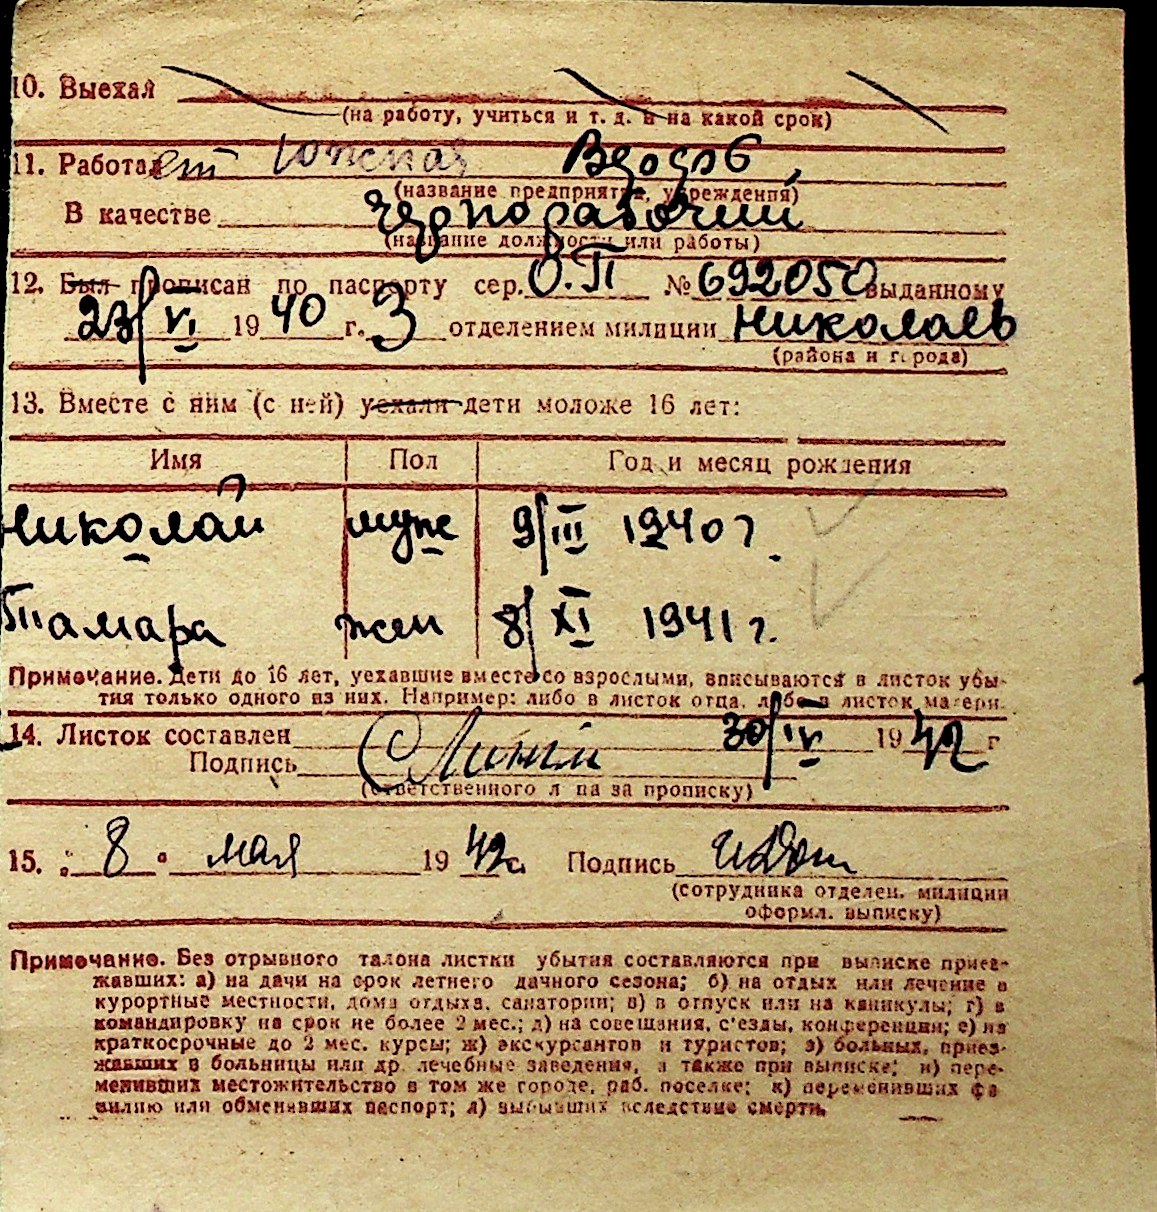 10. Выехал
(на работу, учиться и т. д. и на какой срок)
11. Работает Южная
(название предприятия, учреждения)
В качестве чернорабочий
(название должности или работы)
12. Был прописан по паспорту сер. О.П № 692050 выданному
23/VI 1940 г. 3 отделением милиции Николаев
(района и города)
13. Вместе с ним (с ней) уехали дети моложе 16 лет:
Имя Пол Год и месяц рождения
Николай муж 9/III 1940 г.
Тамара жен 8/XI 1941 г.
Примечание. Дети до 16 лет, уехавшие вместе со взрослыми, вписываются в листок убы-
тия только одного из них. Например: либо в листок отца, либо в листок матери.
14. Листок составлен 30/IV 1942 г
Подпись
(ответственного лица за прописку)
15. „ 8 " мая 1942 г. Подпись
(сотрудника отделен. милиции
оформл. выписку)
Примечание. Без отрывного талона листки убытия составляются при выписке приез-
жавших: а) на дачи на срок летнего дачного сезона; б) на отдых или лечение в
курортные местности, дома отдыха, санатории; в) в отпуск или на каникулы; г) в
командировку на срок не более 2 мес.; д) на совещания, с'езды, конференции; е) на
краткосрочные до 2 мес. курсы; ж) экскурсантов и туристов; з) больных, приез-
жавших в больницы или др. лечебные заведения, а также при выписке; и) пере-
менивших местожительство в том же городе, раб. поселке; к) переменивших фа
милию или обменявших паспорт; л) выбывших вследствие смерти.